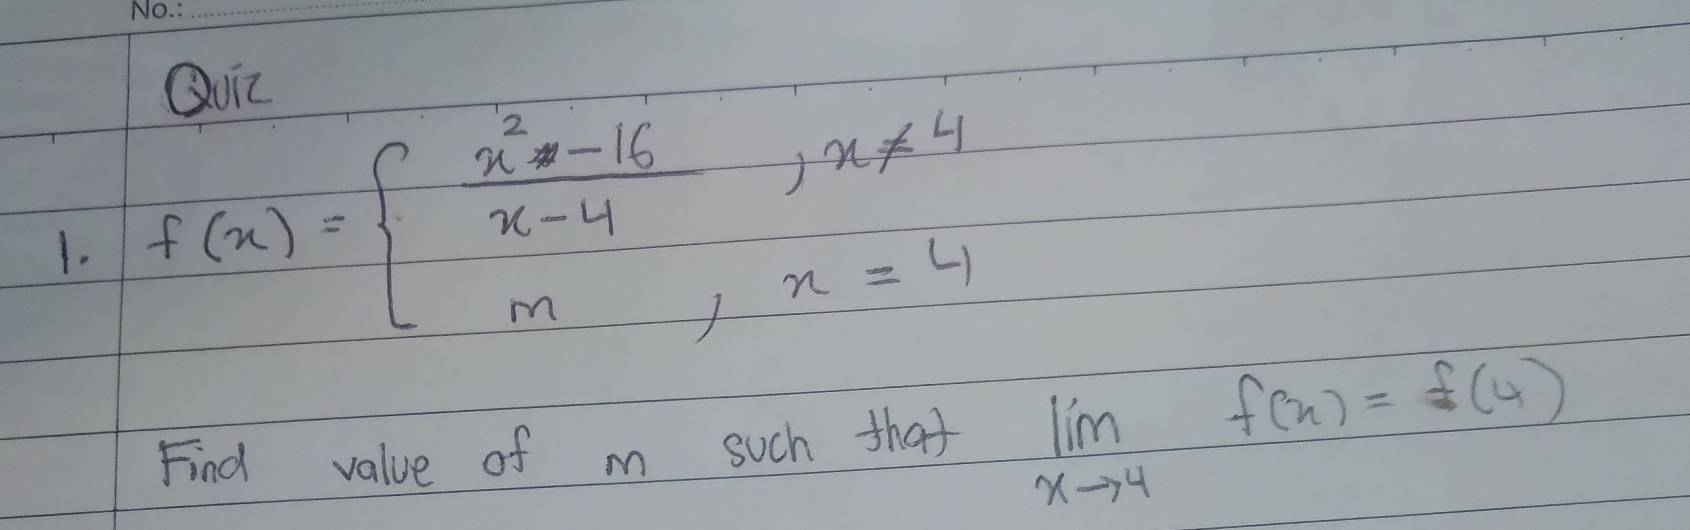 No.:
Quiz
1. f(x) = { x² - 16 / x - 4 , x ≠ 4
m , x = 4
Find value of m such that lim x→4 f(x) = f(4)